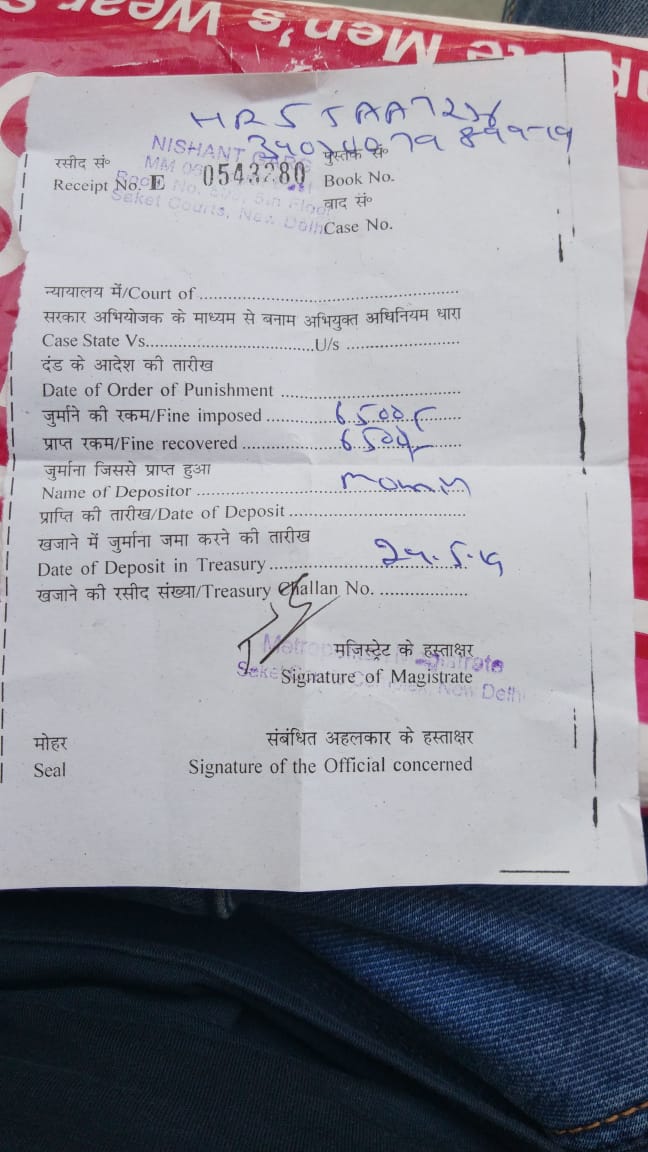 Men's Wear
NISHANT GARG
रसीद सं॰
Receipt No. E 0543280
पुस्तक सं॰
Book No.
वाद सं॰
Saket Courts, New Delhi
Case No.
न्यायालय में/Court of
सरकार अभियोजक के माध्यम से बनाम अभियुक्त अधिनियम धारा
Case State Vs. U/s
दंड के आदेश की तारीख
Date of Order of Punishment
जुर्माने की रकम/Fine imposed 6500/-
प्राप्त रकम/Fine recovered 6500/-
जुर्माना जिससे प्राप्त हुआ
Name of Depositor
प्राप्ति की तारीख/Date of Deposit
खजाने में जुर्माना जमा करने की तारीख
Date of Deposit in Treasury
खजाने की रसीद संख्या/Treasury Challan No.
मजिस्ट्रेट के हस्ताक्षर
Signature of Magistrate
New Delhi
मोहर
संबंधित अहलकार के हस्ताक्षर
Seal
Signature of the Official concerned